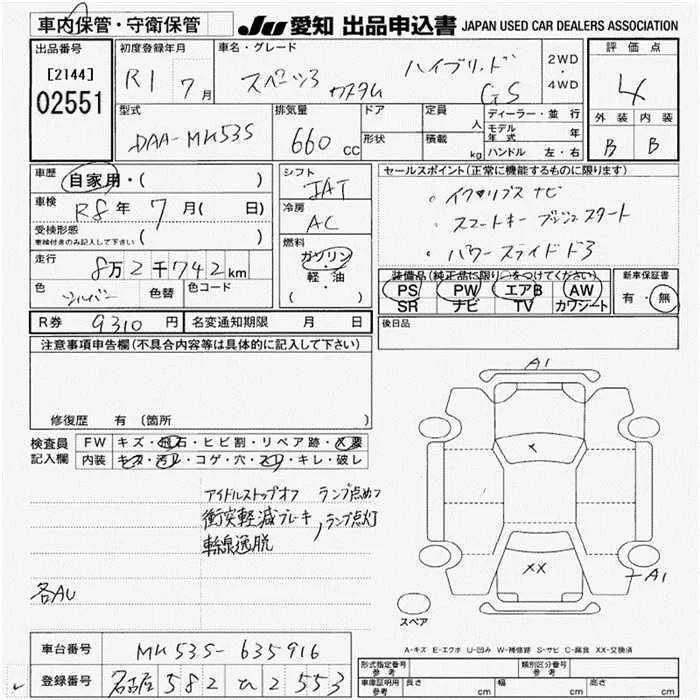 車内保管・守衛保管
JU 愛知 出品申込書 JAPAN USED CAR DEALERS ASSOCIATION
出品番号 初度登録年月 車名・グレード 評価点
[2144] R1 7月 スペーシア カスタム ハイブリッド GS 2WD・4WD 4
02551
型式 排気量 ドア 定員 ディーラー・並行 外装 内装
DAA-MK53S 660cc 形状 人 積載 kg モデル年式 年 ハンドル 左・右 B B
車歴 自家用・( ) シフト セールスポイント(正常に機能するものに限ります)
車検 R8年 7月( 日) IAT
受検形態 車検付きのみ記入して下さい ( ) 冷房 AC
・スマートキー プッシュスタート
・パワースライドドア
走行 8万2千742km 燃料 ガソリン・軽・油 ( )
色 シルバー 色替 色コード
装備品(純正品に限り○をつけてください) 新車保証書
PS PW エアB AW 有・無
SR ナビ TV カワシート
R券 9310円 名変通知期限 月 日 後日品
注意事項申告欄(不具合内容等は具体的に記入して下さい)
修復歴 有 (箇所 )
検査員記入欄 FW キズ・飛石・ヒビ割・リペア跡・×要
内装 キズ・汚れ・コゲ・穴・スレ・キレ・破レ
アイドルストップオフ ランプ点めつ
衝突軽減ブレーキ, ランプ点灯
車線逸脱
各AU
A1
×
××
A1
スペア
A-キズ E-エクボ U-凹み W-補修跡 S-サビ C-腐食 XX-交換済
車台番号 MK53S-635916
登録番号 名古屋 582 ひ 2553
形式指定番号 参考 類別区分番号 参考
車庫証明用 参考 長さ cm 幅 cm 高さ cm